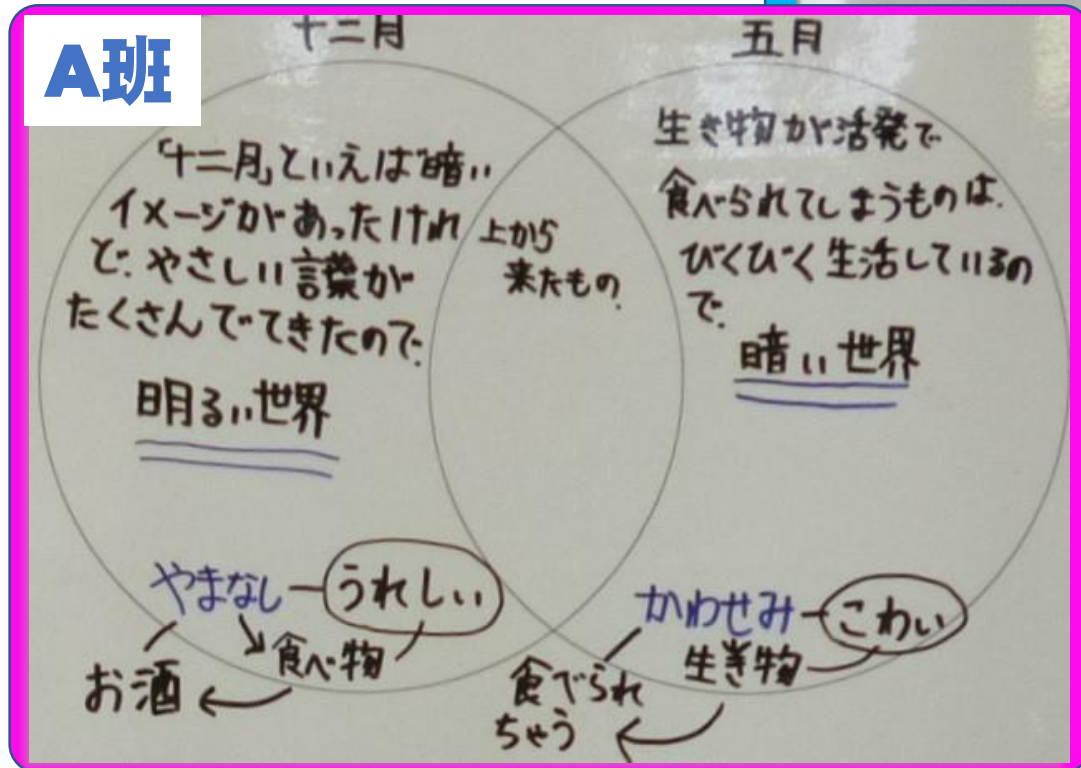 A班
十二月
「十二月」といえば暗い
イメージがあったけれ
ど、やさしい言葉が
たくさんでてきたので、
明るい世界
上から
来たもの。
五月
生き物が活発で
食べられてしまうものは、
びくびく生活しているの
で、
暗い世界
やまなし
うれしい
食べ物
お酒
かわせみ
こわい
生き物
食べられ
ちゃう